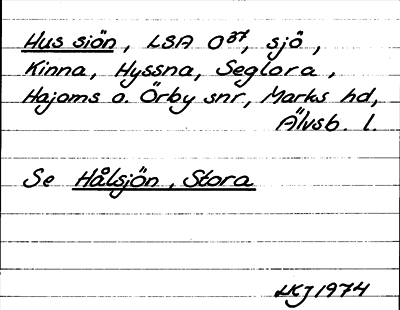 Hus siön, LSA O³⁷, sjö,
Kinna, Hyssna, Seglora,
Hajoms o. Örby snr, Marks hd,
Älvsb. l.
Se Hålsjön, Stora
LKJ 1974